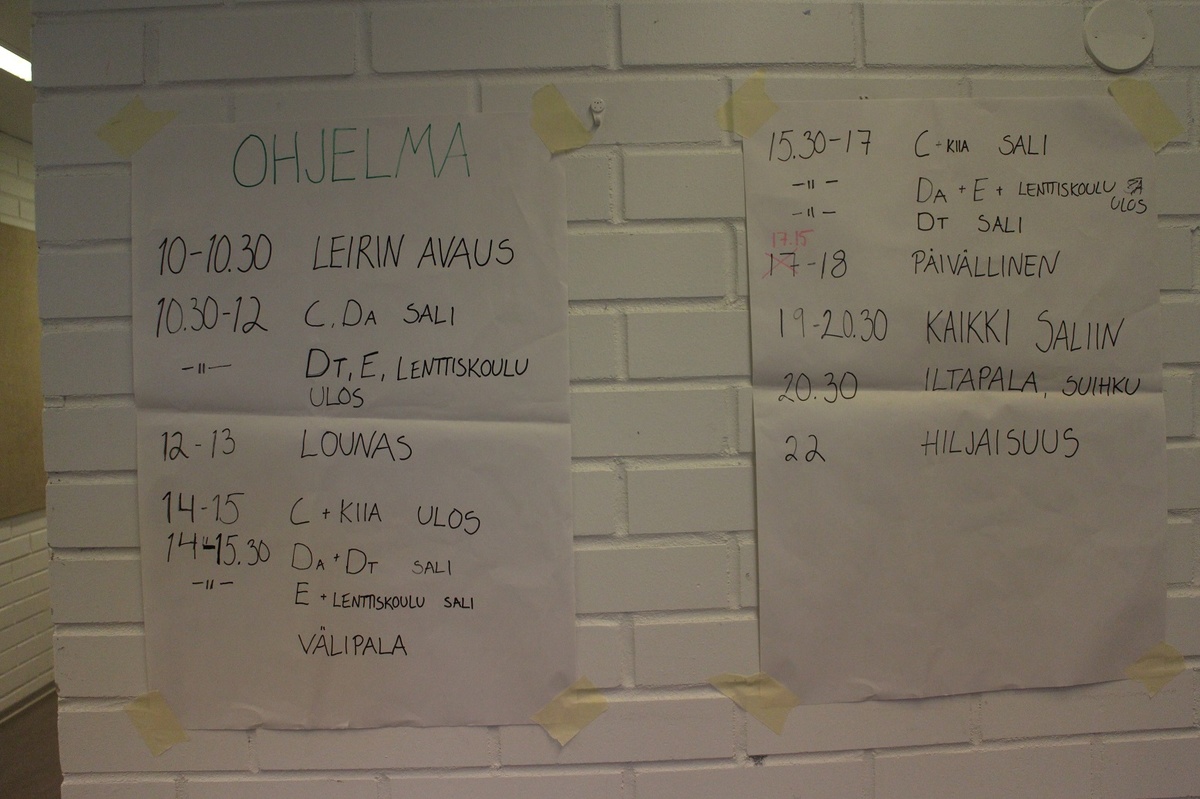 OHJELMA
10-10.30 LEIRIN AVAUS
10.30-12 C, DA SALI
-"- DT, E, LENTTISKOULU
ULOS
12-13 LOUNAS
14-15 C + KIIA ULOS
14-15.30 DA + DT SALI
-"- E + LENTTISKOULU SALI
VÄLIPALA
15.30-17 C + KIIA SALI
-"- DA + E + LENTTISKOULU
ULOS
-"- DT SALI
17.15
17-18 PÄIVÄLLINEN
19-20.30 KAIKKI SALIIN
20.30 ILTAPALA, SUIHKU
22 HILJAISUUS